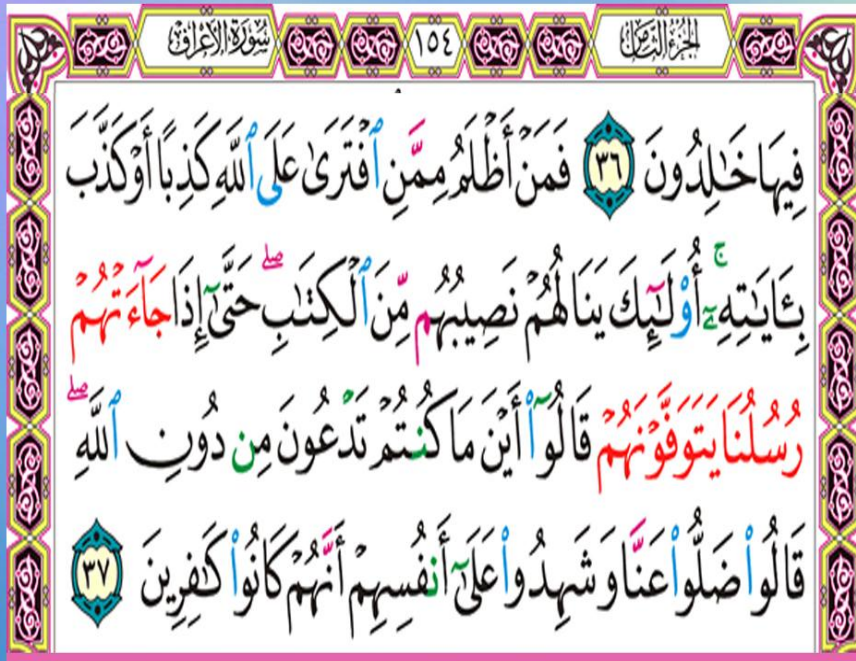 الجزء الثامن ١٥٤ سورة الأعراف
فِيهَا خَٰلِدُونَ ٣٦ فَمَنْ أَظْلَمُ مِمَّنِ ٱفْتَرَىٰ عَلَى ٱللَّهِ كَذِبًا أَوْ كَذَّبَ
بِـَٔايَٰتِهِۦٓ ۚ أُو۟لَٰٓئِكَ يَنَالُهُمْ نَصِيبُهُم مِّنَ ٱلْكِتَٰبِ ۖ حَتَّىٰٓ إِذَا جَآءَتْهُمْ
رُسُلُنَا يَتَوَفَّوْنَهُمْ قَالُوٓا۟ أَيْنَ مَا كُنتُمْ تَدْعُونَ مِن دُونِ ٱللَّهِ ۖ
قَالُوا۟ ضَلُّوا۟ عَنَّا وَشَهِدُوا۟ عَلَىٰٓ أَنفُسِهِمْ أَنَّهُمْ كَانُوا۟ كَٰفِرِينَ ٣٧